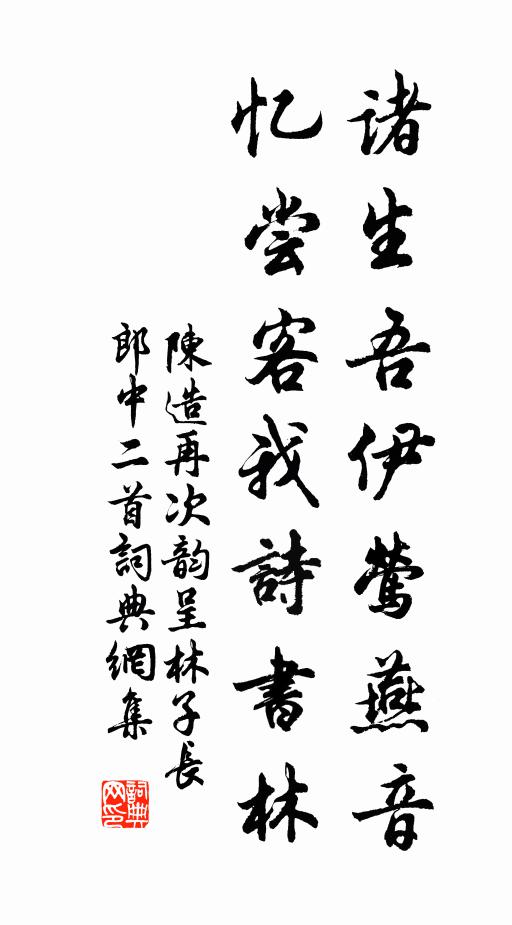 诸生吾伊莺燕音
忆尝客我詩書林
陳造再次韵呈林子長
郎中二首詞典網集
詞典网印